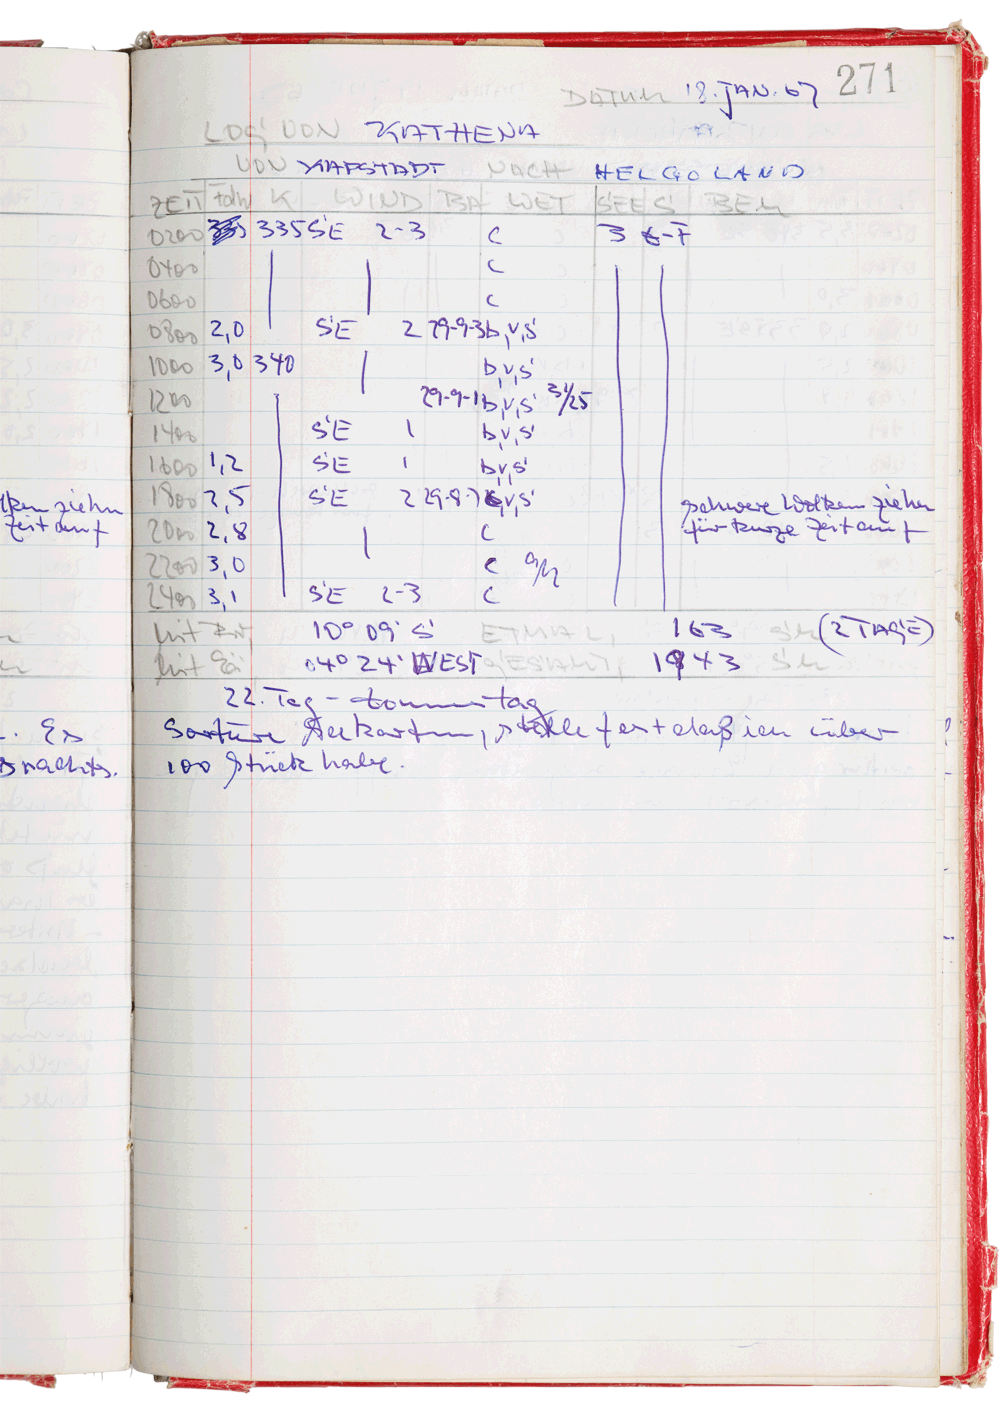 271
DATUM 18. JAN. 67
LOG VON KATHENA
VON KAPSTADT NACH HELGOLAND
ZEIT Fahr K WIND BA WET SEE S BEM
0200 335 SE 2-3 c 3 6-7
0400 c
0600 c
0800 2,0 SE 2 29-9-3 b,v,s
1000 3,0 340 b,v,s
1200 29-9-1 b,v,s 31/25
1400 SE 1 b,v,s
1600 1,2 SE 1 b,v,s
1800 2,5 SE 2 29-8-7 c,v,s schwere Wolken ziehn
2000 2,8 c für kurze Zeit auf
2200 3,0 c
2400 3,1 SE 2-3 c
Mit Br. 10° 09' S ETMAL, 163 sm (2 TAGE)
Mit 04° 24' WEST GESAMT, 1943 sm
22. Tag - Donnerstag
Sortiere Seekarten, stelle fest daß ich über
100 Stück habe.
lken ziehn
Zeit auf
. Es
s nachts.